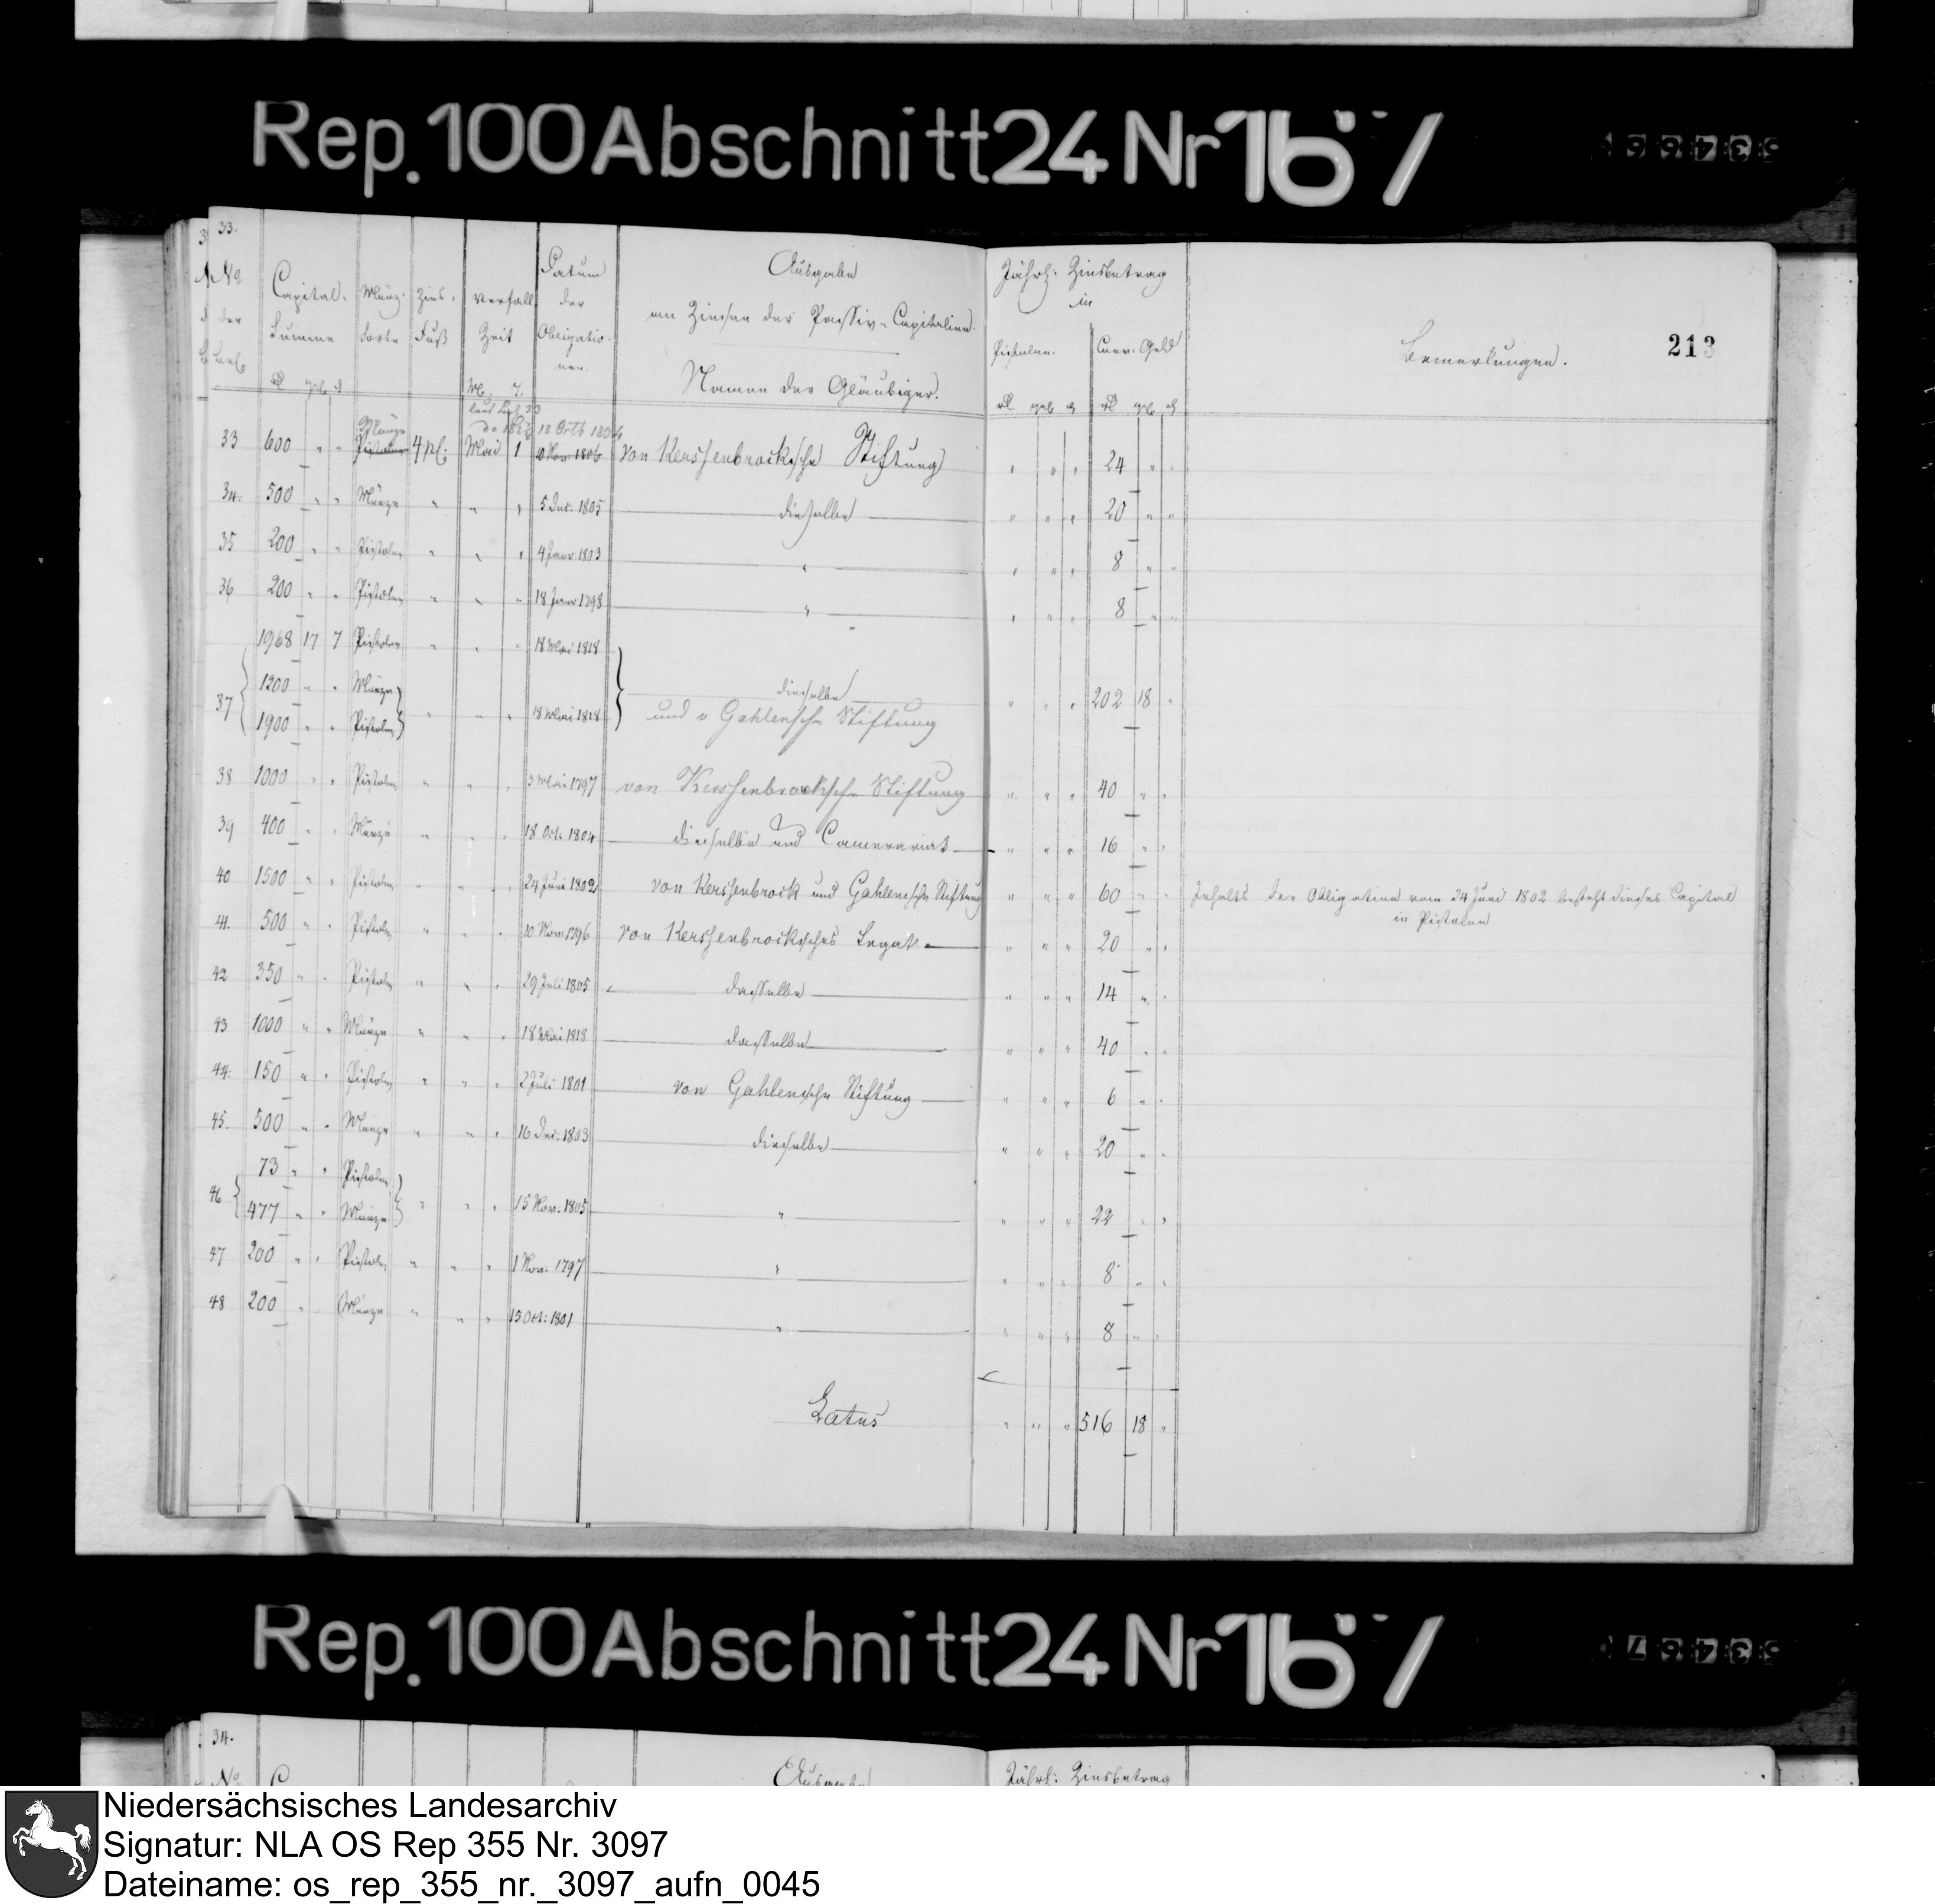 Rep. 100 Abschnitt 24 Nr 167
33.
No der Bel. | Capital-Summe | Münz-Sorte | Zins-Fuß | Verfall Zeit | Datum der Obligationen | Ausgaben
an Zinsen der Passiv-Capitalien.
Namen der Gläubiger. | Jährl: Zinsbetrag in
Pistolen. | Cour: Geld | Bemerkungen. | 213
33 600 " " Pistolen Münze 4 pC: Mai 1 18 Octb 1804 von Kerssenbrocksche Stiftung " " " 24 " "
34. 500 " " Münze " " " 5 Dec. 1805 dieselbe " " " 20 " "
35 200 " " Pistolen " " " 4 Janr 1803 " " " " 8 " "
36 200 " " Pistolen " " " 18 Janr 1798 " " " " 8 " "
1968 17 7 Pistolen " " " 18 Mai 1818
37 1200 " " Münze dieselbe " " " 202 18 "
1900 " " Pistolen " " " 18 Mai 1818 und v Gahlensche Stiftung
38 1000 " " Pistolen " " " 3 Mai 1797 von Kerssenbrocksche Stiftung " " " 40 " "
39 400 " " Münze " " " 18 Oct. 1804 dieselbe und Camerariat " " " 16 " "
40 1500 " " Pistolen " " " 24 Juni 1802 von Kerssenbrock und Gahlensche Stiftung " " " 60 " " Inhalts der Obligation vom 24 Juni 1802 besteht dieses Capital
in Pistolen
41. 500 " " Pistolen " " " 10 Nov: 1796 von Kerssenbrocksches Legat " " " 20 " "
42 350 " " Pistolen " " " 29 Juli 1805 dasselbe " " " 14 " "
43 1000 " " Münze " " " 18 Mai 1818 dasselbe " " " 40 " "
44. 150 " " Pistolen " " " 2 Juli 1801 von Gahlensche Stiftung " " " 6 " "
45. 500 " " Münze " " " 16 Dec. 1803 dieselbe " " " 20 " "
73 " " Pistolen
46 477 " " Münze " " " 15 Nov. 1805 " " " " 22 " "
47 200 " " Pistolen " " " 1 Nov: 1797 " " " " 8 " "
48 200 " " Münze " " " 15 Oct: 1801 " " " " 8 " "
Latus " " " 516 18 "
Rep. 100 Abschnitt 24 Nr 167
34.
No Ausgaben Jährl: Zinsbetrag
Niedersächsisches Landesarchiv
Signatur: NLA OS Rep 355 Nr. 3097
Dateiname: os_rep_355_nr._3097_aufn_0045